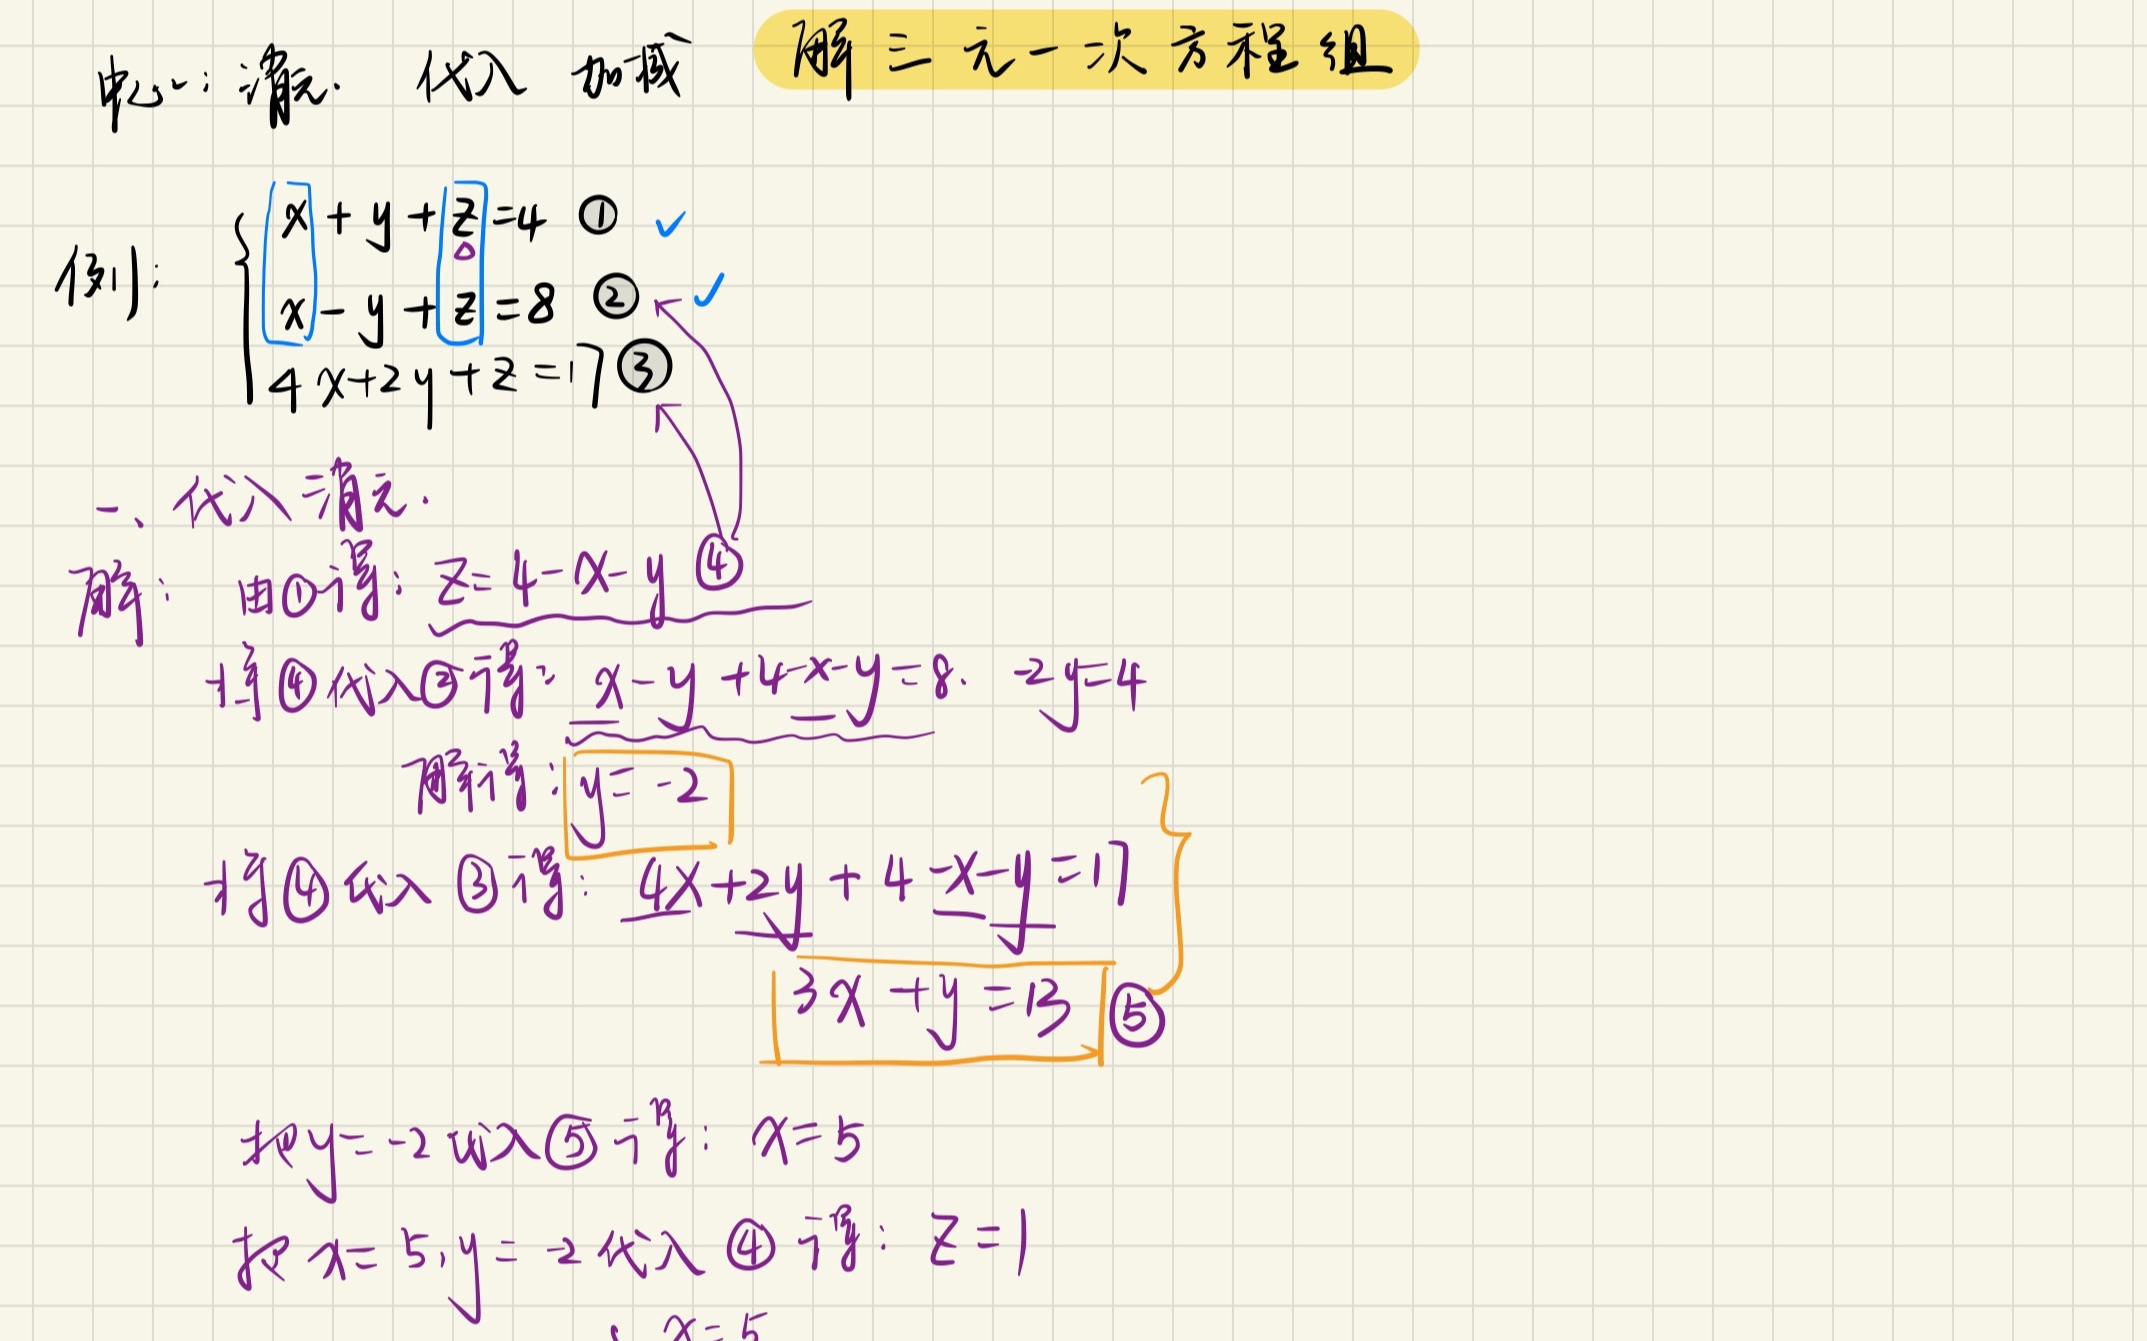 解三元一次方程组
中心：消元. 代入 加减
例：
x+y+z=4 ①
x-y+z=8 ②
4x+2y+z=17 ③
一、代入消元.
解： 由①得：z=4-x-y ④
将④代入②得：x-y+4-x-y=8. -2y=4
解得：y=-2
将④代入③得：4x+2y+4-x-y=17
3x+y=13 ⑤
把y=-2代入⑤得：x=5
把x=5,y=-2代入④得：z=1
x=5